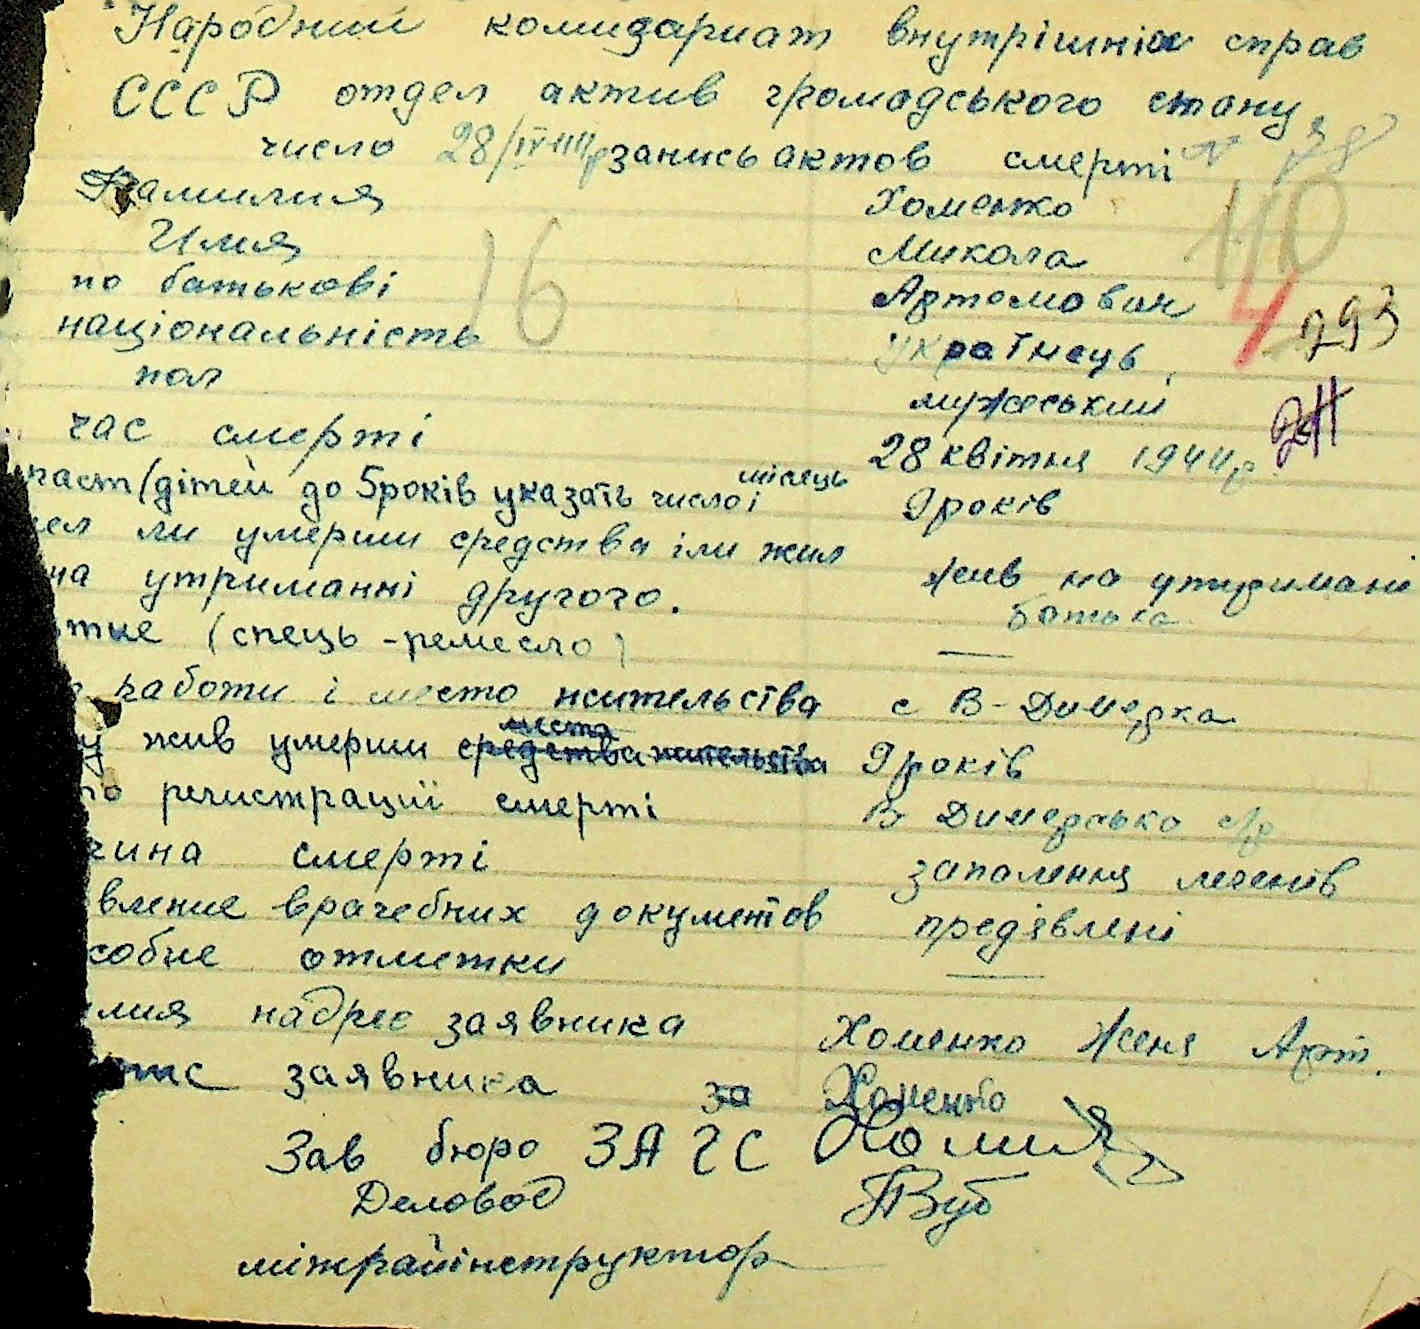 Народний комизариат внутрішніх справ
СССР отдел актив громадського стану
число 28/IV-44р запись актов смерті N 78
Фамилия Хоменко 110
Имия Микола
16
по батькові Артомович 4
національність Українець 793
пол мужеський
час смерті 28 квітня 1944р
раст (дітей до 5 років указать число і місець 9 років
мел ли умерши средства іли жил
на утриманні другого. жив на утримані батька
отие (спець-ремесло) —
работи і место жительства с В-Димерка
у жив умерши средства места жительства 9 років
то регистрациї смерті В Димерсько с/р
чина смерті запалення легенів
вление врачебних документов предявлені
собие отметки —
илия надрес заявника Хоменко Женя Арт.
заявника за Хоменко
Зав бюро ЗАГС
Деловод
міжрайінструктор